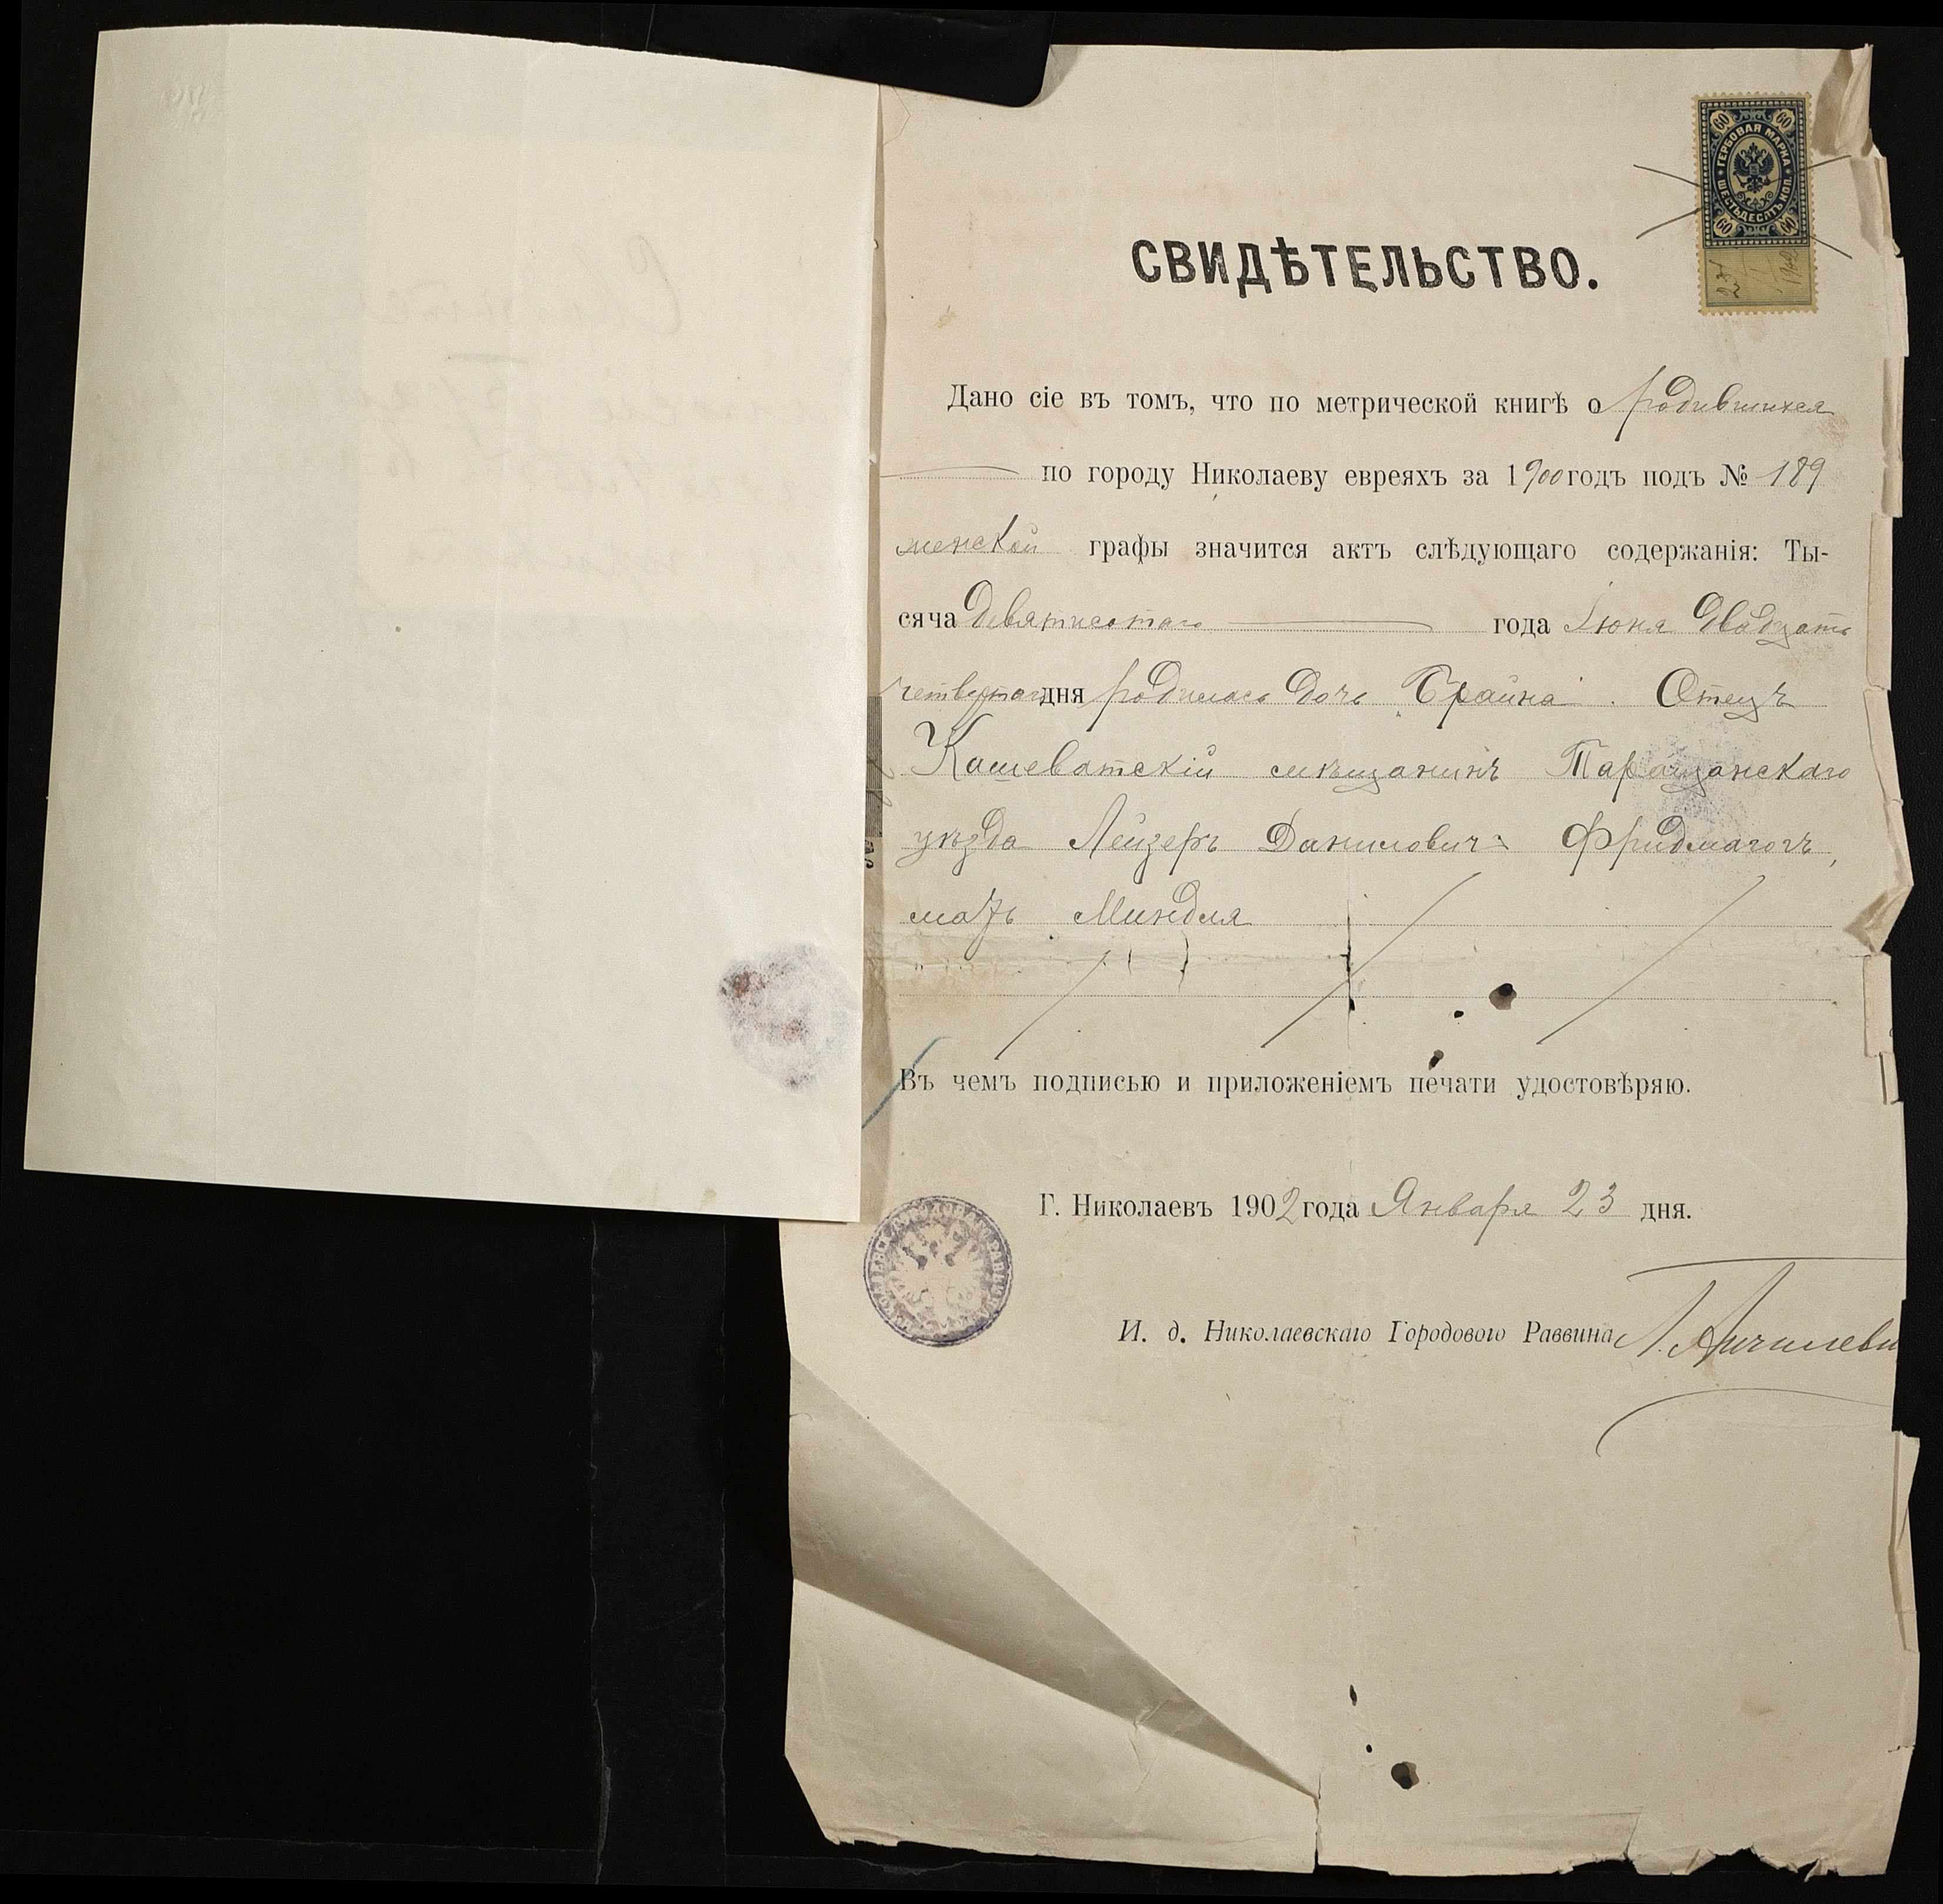 60 60
ГЕРБОВАЯ МАРКА
ШЕСТЬДЕСЯТЪ КОП.
60 60
23/I 1902
СВИДѢТЕЛЬСТВО.
Дано сіе въ томъ, что по метрической книгѣ о родившихся
по городу Николаеву евреяхъ за 1900 годъ подъ № 189
женской графы значится актъ слѣдующаго содержанія: Ты-
сяча девятисотаго года Іюня двадцать
четвертаго дня родилась дочь Брайна. Отецъ
Кошеватскій мѣщанинъ Таращанскаго
уѣзда Лейзеръ Даниловичъ Фридманъ,
мать Миндля
Въ чемъ подписью и приложеніемъ печати удостовѣряю.
Г. Николаевъ 1902 года Января 23 дня.
И. д. Николаевскаго Городового Раввина